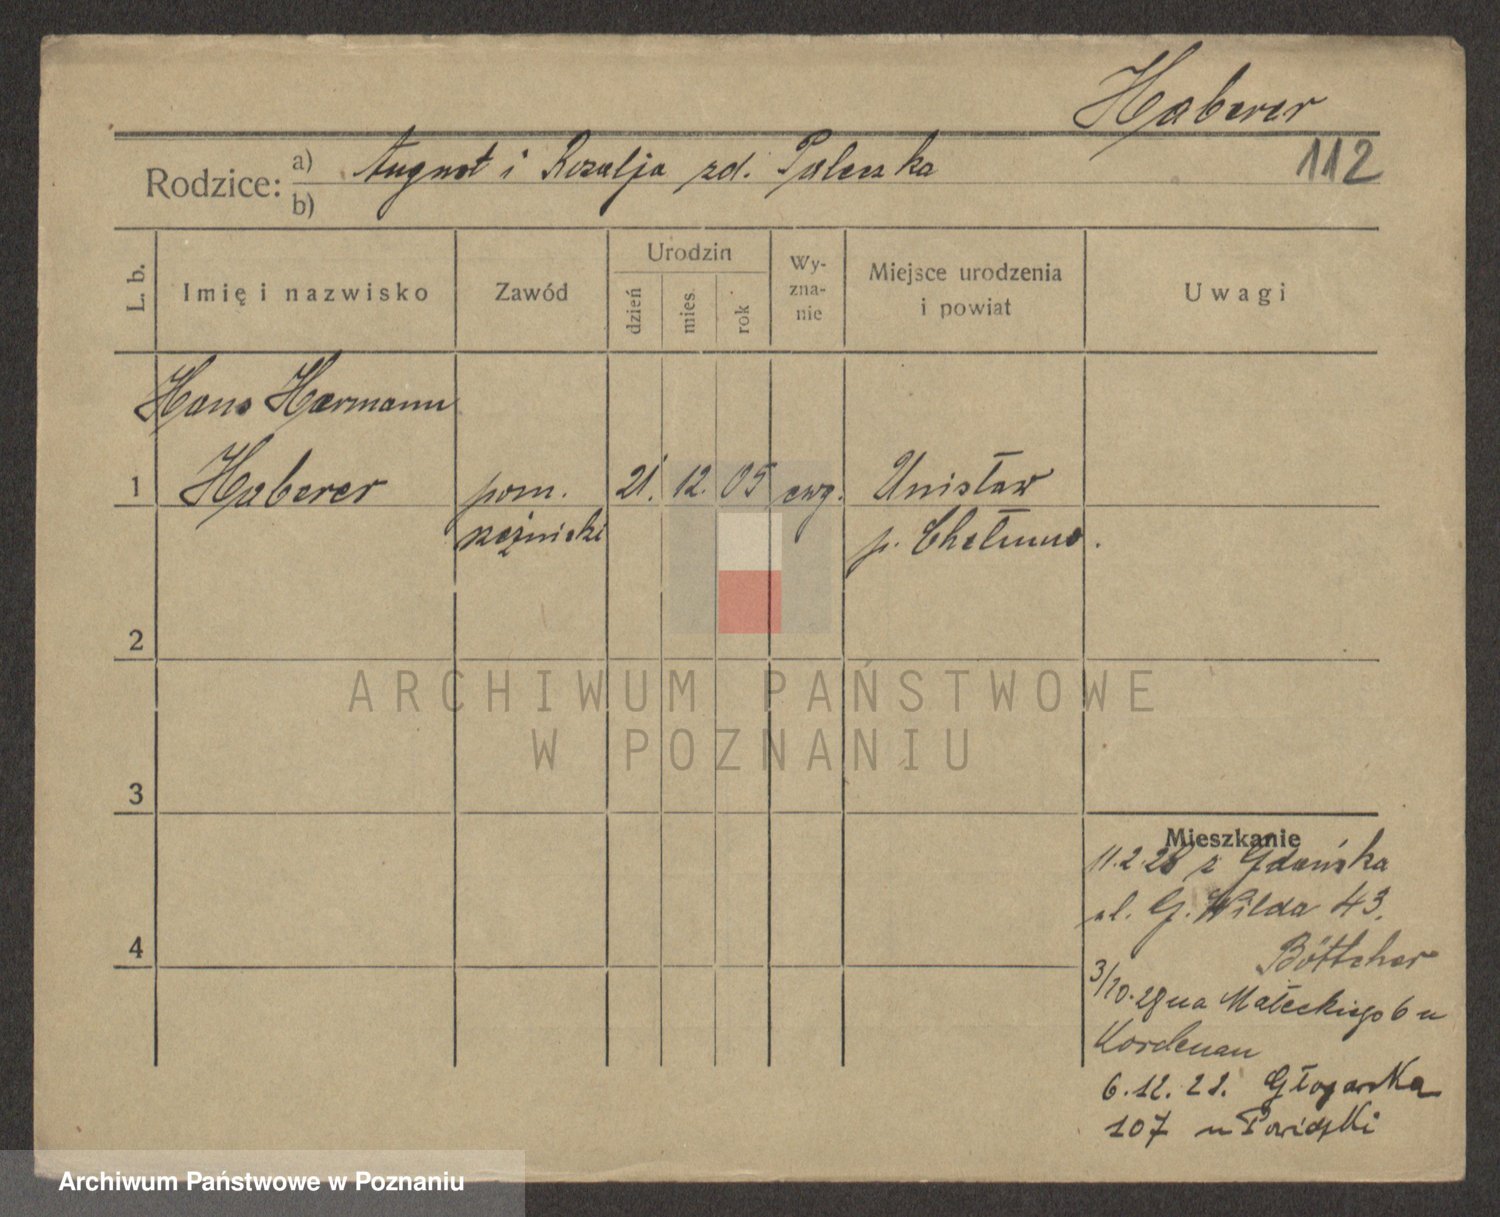 Haberer
112
Rodzice: a) August i Rozalja zd. Paleszka
b)
L. b.
Imię i nazwisko
Zawód
Urodzin
dzień
mies.
rok
Wy-
zna-
nie
Miejsce urodzenia
i powiat
Uwagi
Hans Hermann
1 Haberer pom. 21. 12. 05 ewg. Unisław
rzeźnicki p. Chełmno.
2
3
4
ARCHIWUM PAŃSTWOWE
W POZNANIU
Mieszkanie
11.2.28 z Gdańska
ul. G. Wilda 43.
Böttcher
3/10.28 na Małeckiego 6 u
6.12.28. Głogowska
107 u
Archiwum Państwowe w Poznaniu